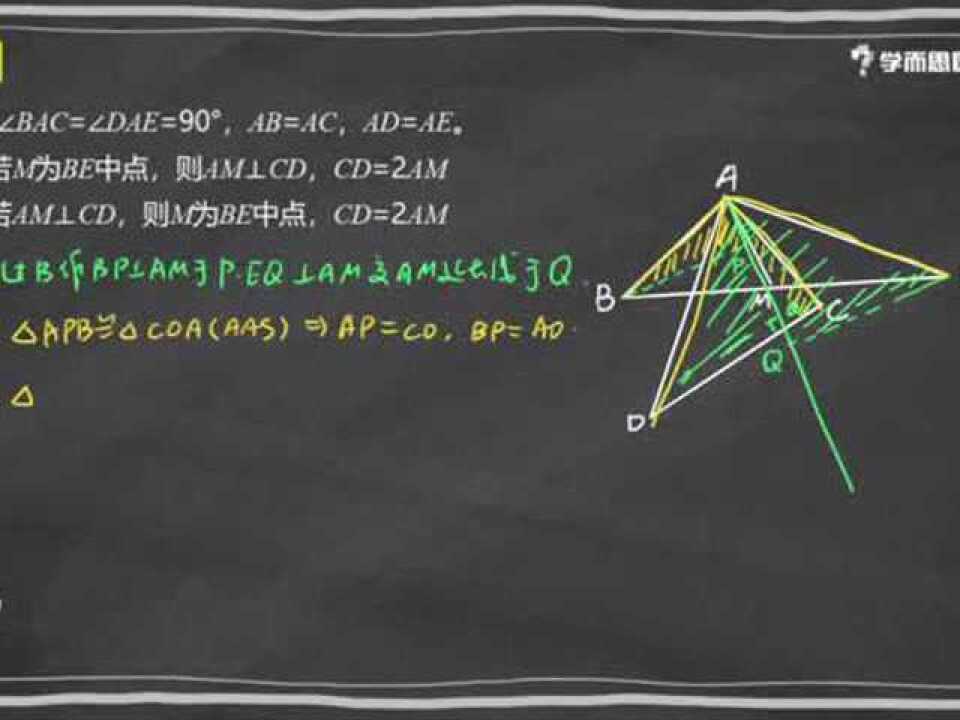 学而思
∠BAC=∠DAE=90°，AB=AC，AD=AE。
若M为BE中点，则AM⊥CD，CD=2AM
若AM⊥CD，则M为BE中点，CD=2AM
过B作BP⊥AM于P.EQ⊥AM交AM延长线于Q
△APB≌△COA(AAS)⇒AP=CO, BP=AO
△
A
B
M
C
Q
D